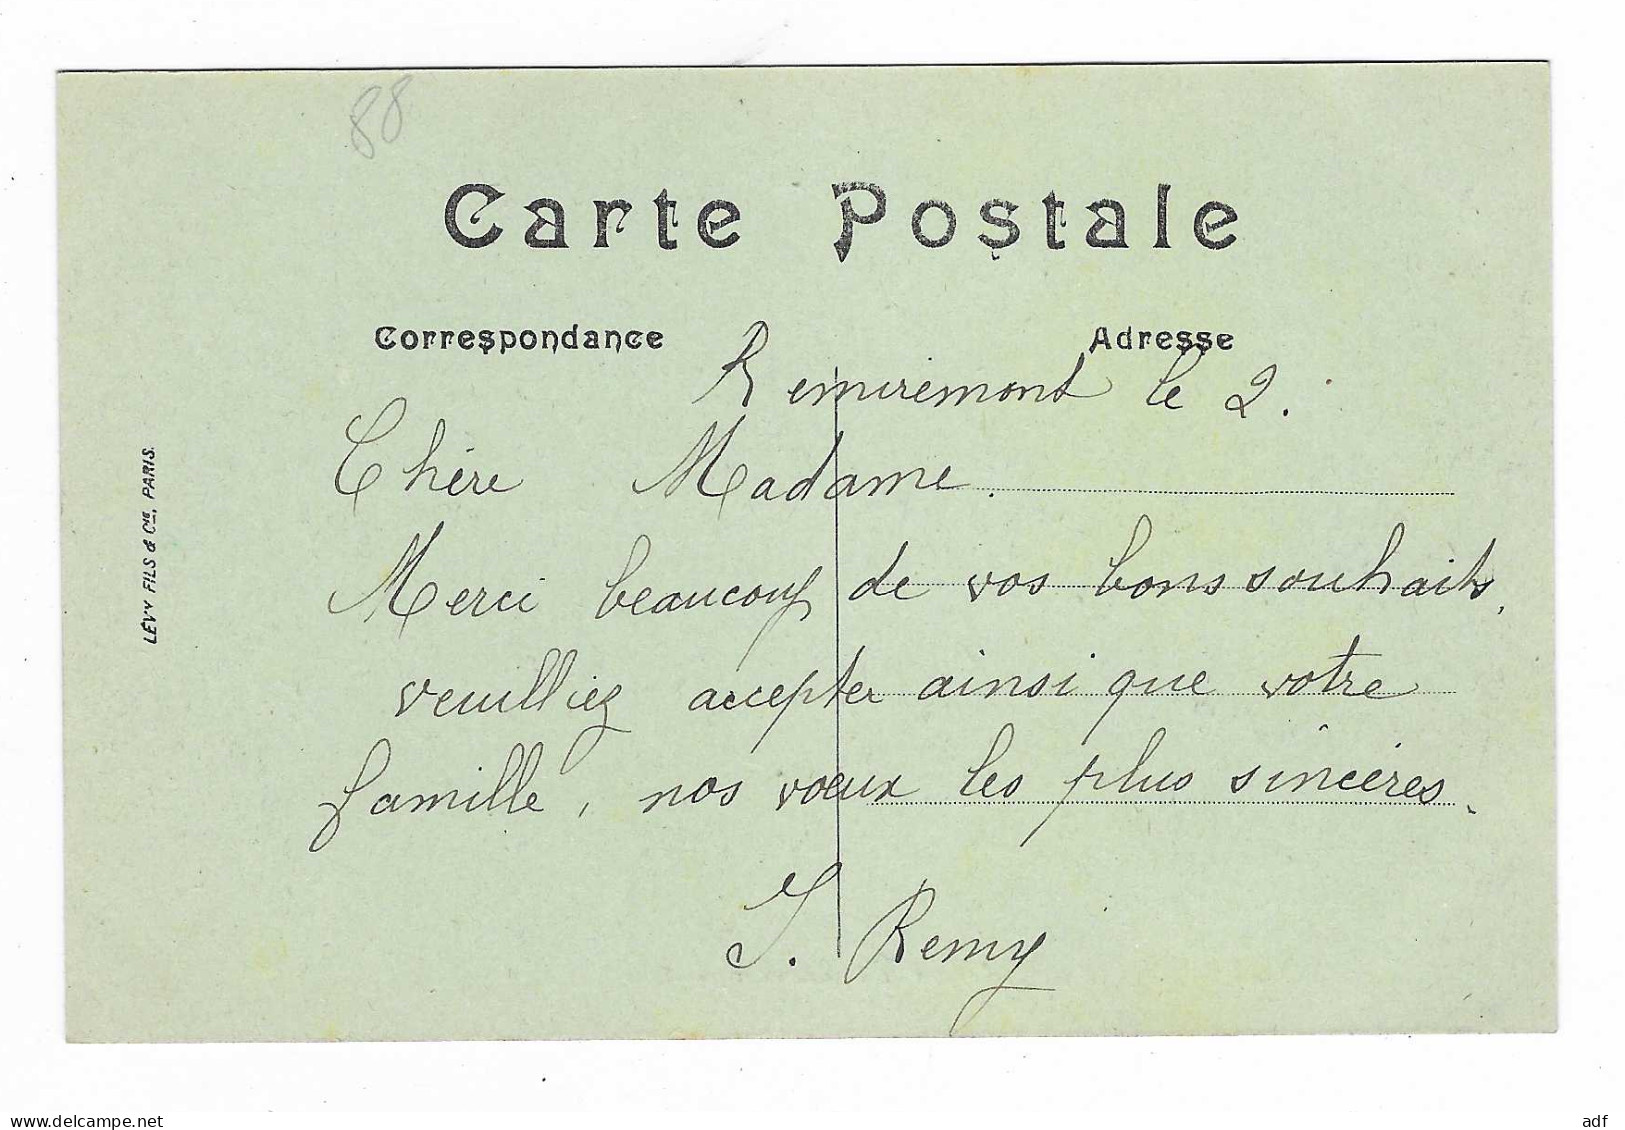 88
Carte Postale
Correspondance Adresse
Remiremont le 2.
Chère Madame.
Merci beaucoup de vos bons souhaits,
veuilliez accepter ainsi que votre
famille, nos voeux les plus sincères.
J. Remy
LÉVY FILS & Cie, PARIS.
https://www.delcampe.net
adf